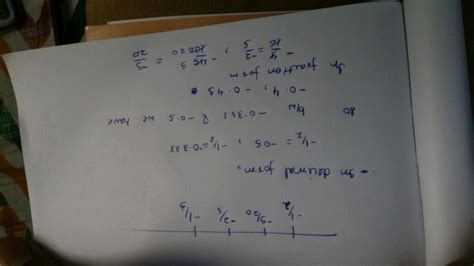 -1/2 -9/20 -2/5 -1/3
- In decimal form,
-1/2 = -0.5 , -1/3 = -0.333
so b/w -0.333 & -0.5 we have
-0.4, -0.45
In fraction form
-4/10 = -2/5 ,  = -9/20